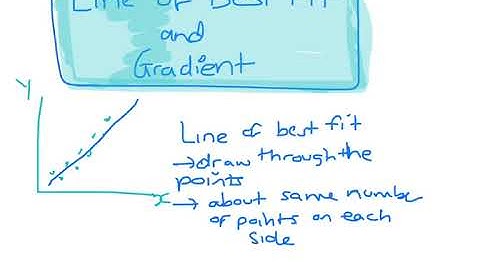 Line of Best Fit
and
Gradient
Y
x
Line of best fit
→draw through the
points
→ about same number
of points on each
side